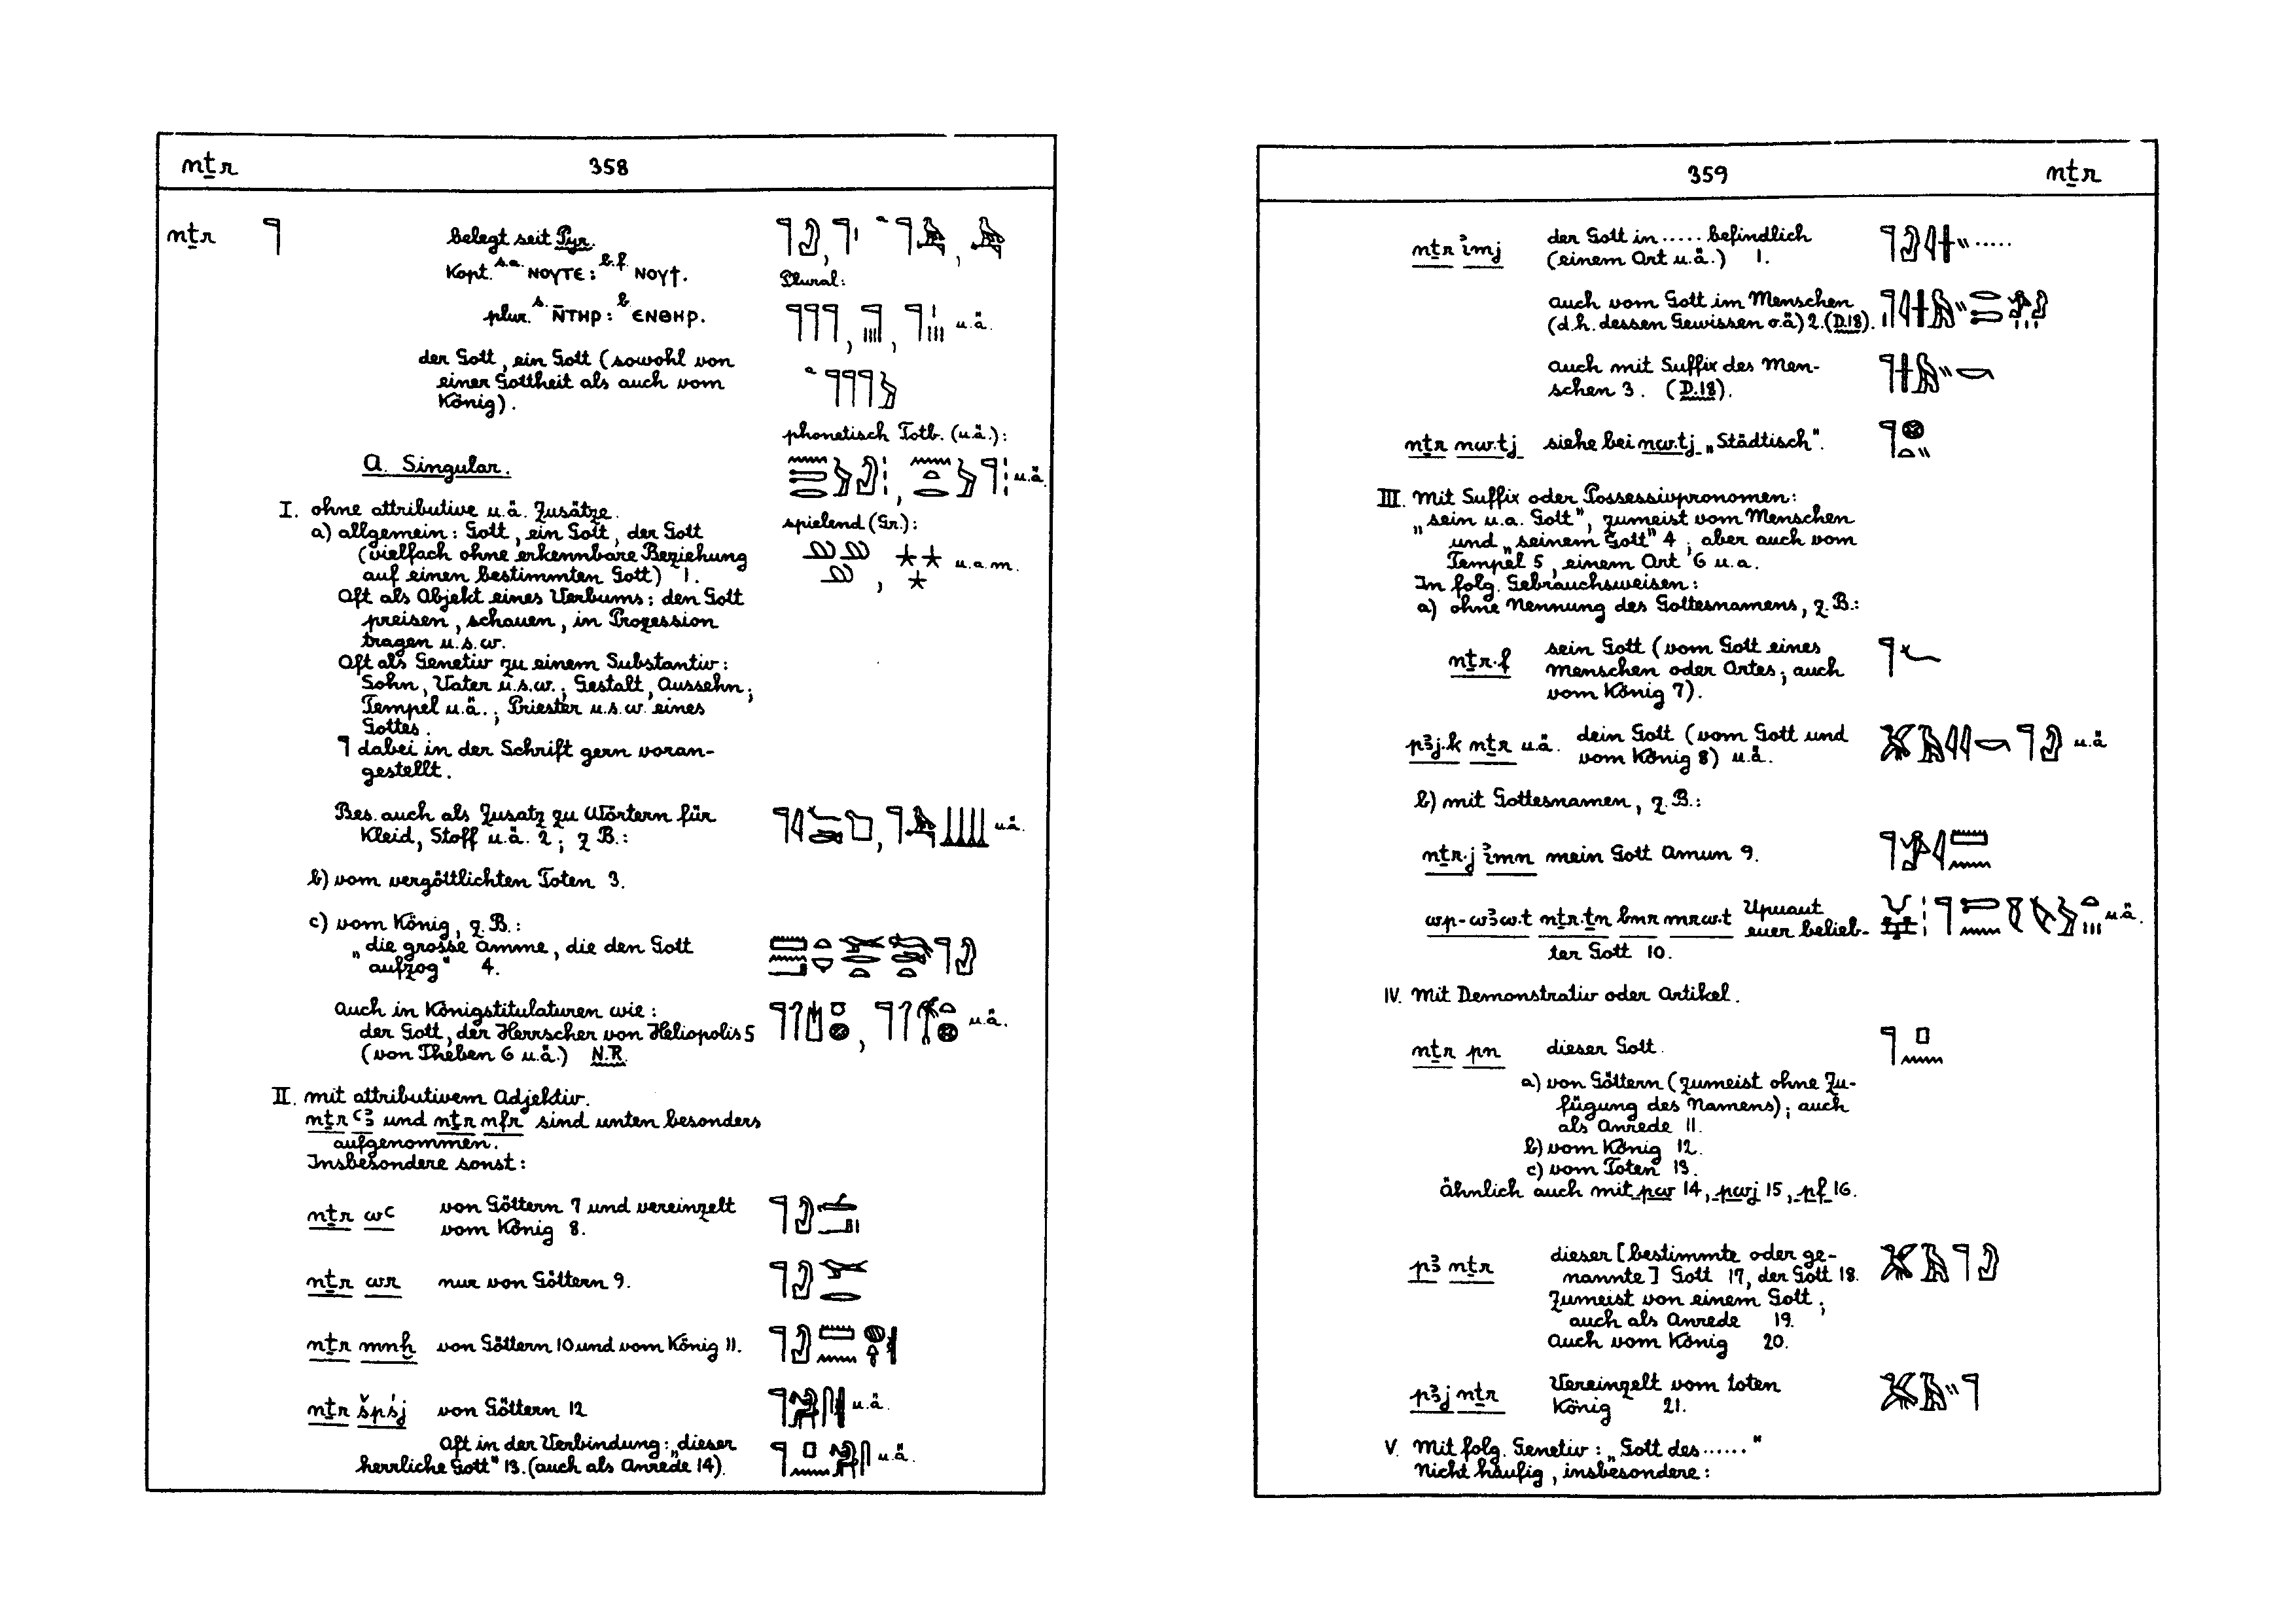 nṯr 358
nṯr 𓊹 belegt seit Pyr.
Kopt. s.a. ⲛⲟⲩⲧⲉ : b.f. ⲛⲟⲩϯ.
plur. s. ⲛ̄ⲧⲏⲣ : b. ⲉⲛⲑⲏⲣ.
der Gott, ein Gott (sowohl von
einer Gottheit als auch vom
König).
Plural:
𓊹𓊹𓊹, 𓊹𓏪, 𓊹 u.ä.
phonetisch Totb. (u.ä.):
u.ä.
spielend (Gr.):
u.a.m.
A. Singular.
I. ohne attributive u.ä. Zusätze.
a) allgemein: Gott, ein Gott, der Gott
(vielfach ohne erkennbare Beziehung
auf einen bestimmten Gott) 1.
Oft als Objekt eines Verbums: den Gott
preisen, schauen, in Prozession
tragen u.s.w.
Oft als Genetiv zu einem Substantiv:
Sohn, Vater u.s.w.; Gestalt, Aussehn;
Tempel u.ä.; Priester u.s.w. eines
Gottes.
𓊹 dabei in der Schrift gern voran-
gestellt.
Bes. auch als Zusatz zu Wörtern für
Kleid, Stoff u.ä. 2; z.B.: u.ä.
b) vom vergöttlichten Toten 3.
c) vom König, z.B.:
„die grosse Amme, die den Gott
aufzog" 4.
Auch in Königstitulaturen wie:
der Gott, der Herrscher von Heliopolis 5 u.ä.
(von Theben 6 u.ä.) N.R.
II. mit attributivem Adjektiv.
nṯr ꜥꜣ und nṯr nfr sind unten besonders
aufgenommen.
Insbesondere sonst:
nṯr wꜥ von Göttern 7 und vereinzelt
vom König 8.
nṯr wr nur von Göttern 9.
nṯr mnḫ von Göttern 10 und vom König 11.
nṯr špśj von Göttern 12 u.ä.
Oft in der Verbindung: „dieser
herrliche Gott" 13. (auch als Anrede 14). u.ä.
359 nṯr
nṯr ỉmj der Gott in ..... befindlich
(einem Ort u.ä.) 1.
auch vom Gott im Menschen
(d.h. dessen Gewissen o.ä) 2. (D.18).
auch mit Suffix des Men-
schen 3. (D.18).
nṯr nw.tj siehe bei nw.tj „Städtisch".
III. Mit Suffix oder Possessivpronomen:
„sein u.a. Gott", zumeist vom Menschen
und „seinem Gott" 4; aber auch vom
Tempel 5, einem Ort 6 u.a.
In folg. Gebrauchsweisen:
a) ohne Nennung des Gottesnamens, z.B.:
nṯr.f sein Gott (vom Gott eines 𓊹𓆑
Menschen oder Ortes; auch
vom König 7).
pꜣj.k nṯr u.ä. dein Gott (vom Gott und u.ä
vom König 8) u.ä.
b) mit Gottesnamen, z.B.:
nṯr.j ỉmn mein Gott Amun 9.
wp-wꜣw.t nṯr.ṯn bnr mrw.t Upuaut
euer belieb- u.ä.
ter Gott 10.
IV. Mit Demonstrativ oder Artikel.
nṯr pn dieser Gott. 𓊹𓊪𓈖
a) von Göttern (zumeist ohne Zu-
fügung des Namens); auch
als Anrede 11.
b) vom König 12.
c) vom Toten 13.
ähnlich auch mit pw 14, pwj 15, pf 16.
pꜣ nṯr dieser [bestimmte oder ge-
nannte] Gott 17, der Gott 18.
Zumeist von einem Gott;
auch als Anrede 19.
Auch vom König 20.
pꜣj nṯr Vereinzelt vom toten
König 21.
V. Mit folg. Genetiv: „Gott des ......"
Nicht häufig, insbesondere: